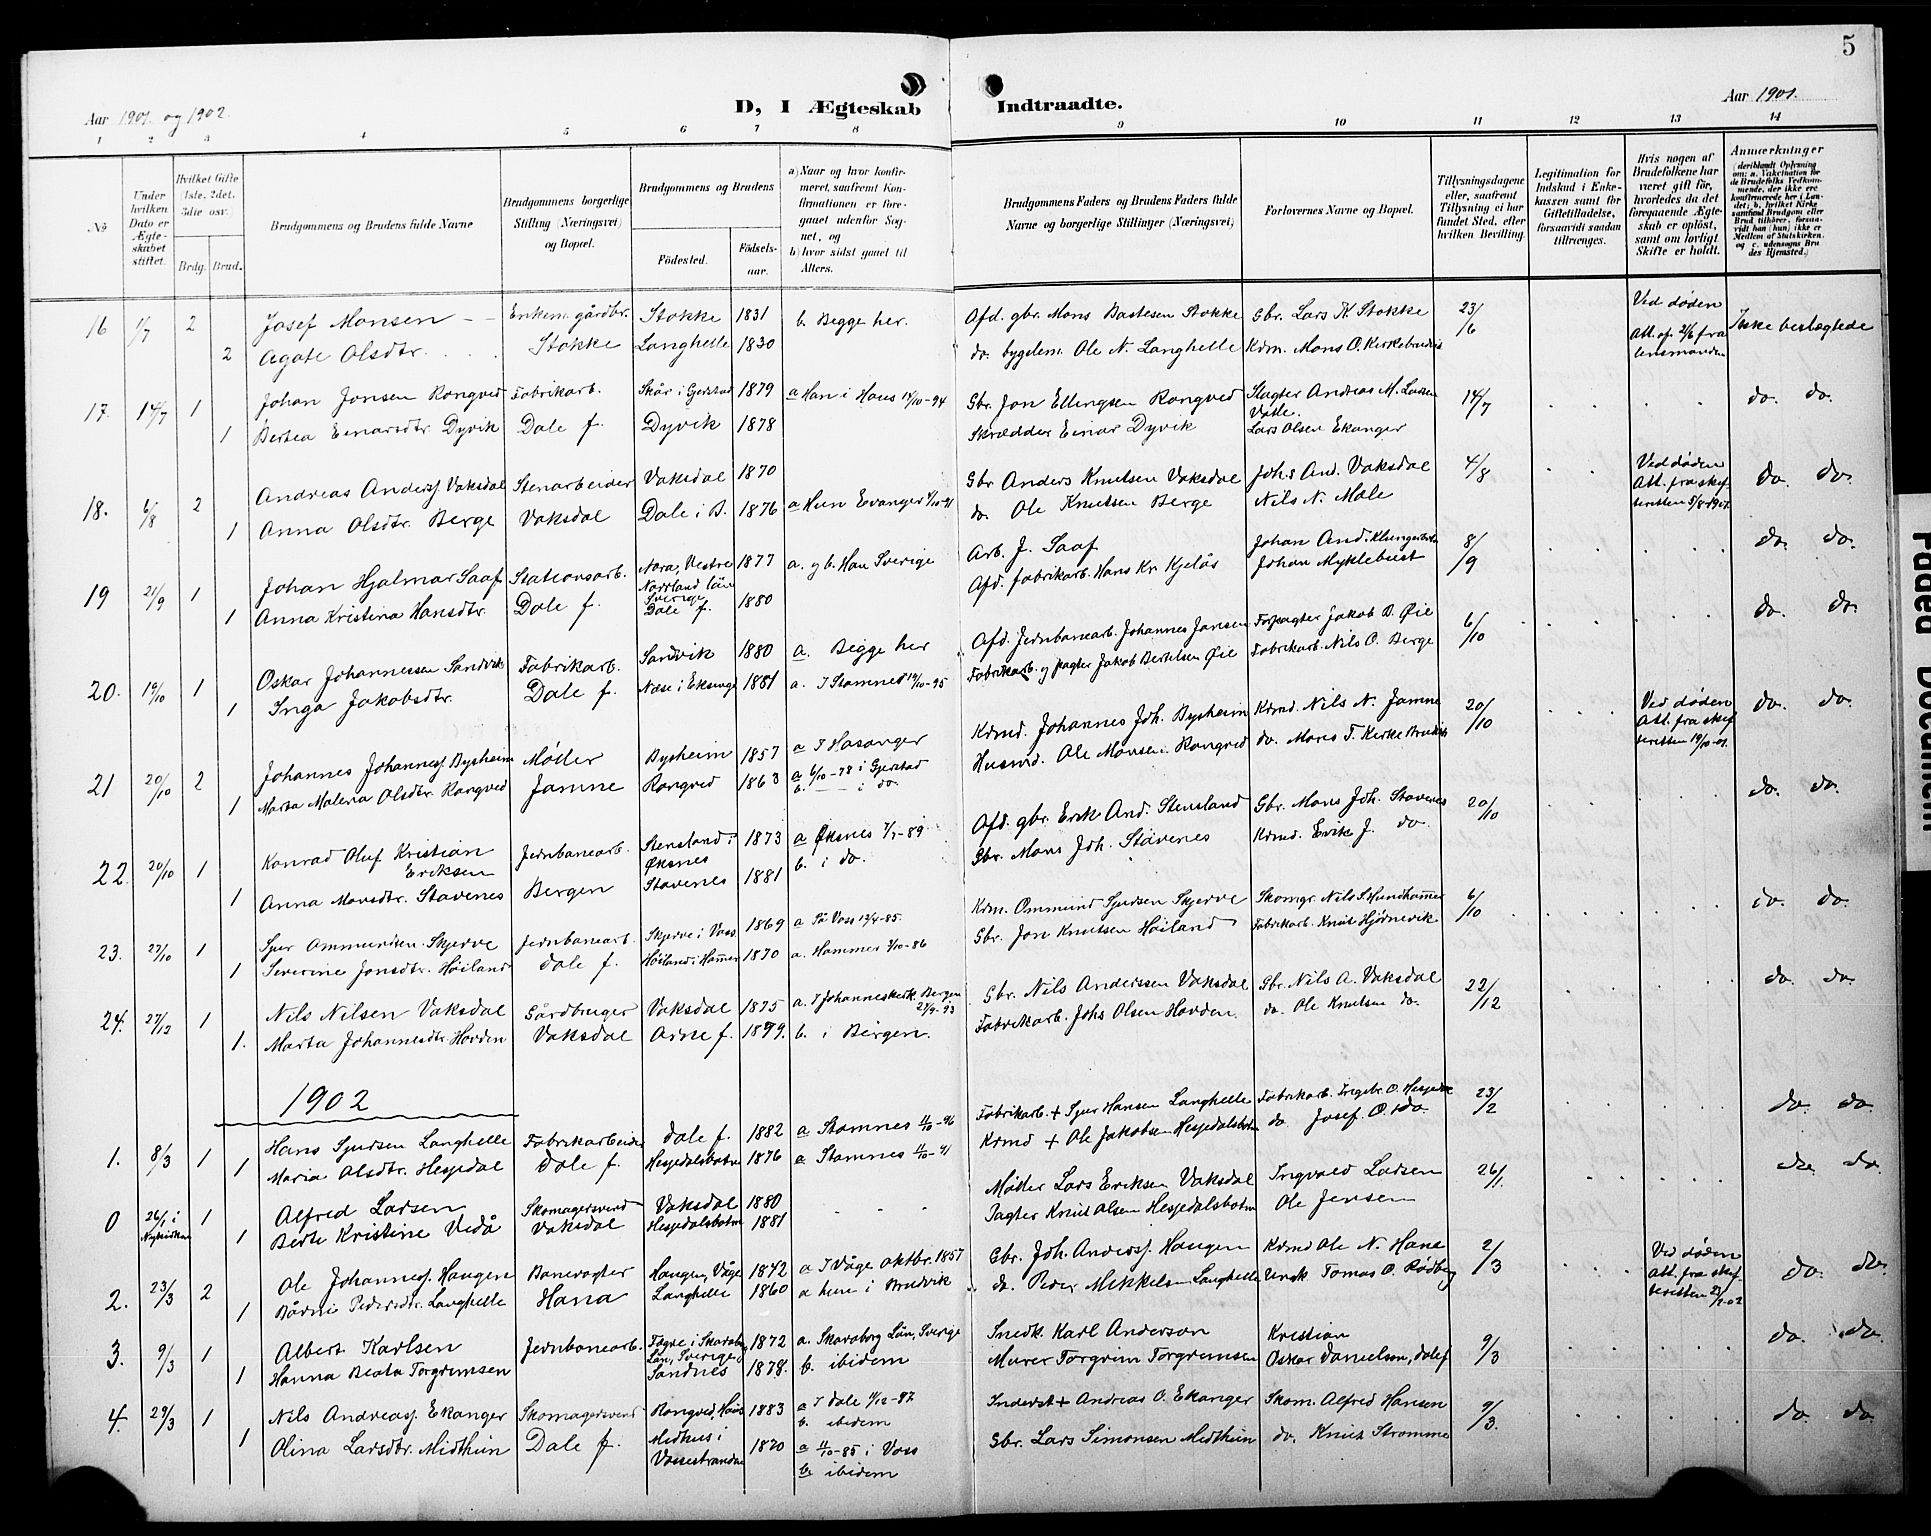 5
Aar 1901 og 1902.
D, I Ægteskab Indtraadte.
Aar 1901.
1 2 3 4 5 6 7 8 9 10 11 12 13 14
No
Under hvilken Dato er Ægteskabet stiftet.
Hvilket Gifte (1ste, 2det, 3die osv.)
Brdg. Brud.
Brudgommens og Brudens fulde Navne
Brudgommens borgerlige Stilling (Næringsvei) og Bopæl.
Brudgommens og Brudens
Fødested.
Fødselsaar.
a) Naar og hvor konfirmeret, saafremt Konfirmationen er foregaaet udenfor Sognet, og
b) hvor sidst gaaet til Alters.
Brudgommens Faders og Brudens Faders fulde Navne og borgerlige Stillinger (Næringsvei)
Forlovernes Navne og Bopæl.
Tillysningsdagene eller, saafremt Tillysning ei har fundet Sted, efter hvilken Bevilling.
Legitimation for Indskud i Enkekassen samt for Giftetilladelse, forsaavidt saadan tiltrænges.
Hvis nogen af Brudefolkene har været gift før, hvorledes da det foregaaende Ægteskab er opløst, samt om lovligt Skifte er holdt.
Anmærkninger
(deriblandt Oplysning om: a. Vakcination for de Brudefolks Vedkommende, der ikke ere konfirmerede her i Landet; b. hvilket Kirkesamfund Brudgom eller Brud tilhører, forsaavidt han (hun) ikke er Medlem af Statskirken, og c. udensogns Brudes Hjemsted.)
16 1/7 2 Josef Monsen Enkem. gårdbr. Stokke 1831 b. Begge her. Afd. gbr. Mons Bastesen Stokke Gbr. Lars K. Stokke 23/6 Ved døden Ikke beslægtede
2 Agate Olsdtr. Stokke Langhelle 1830 do. bygdem. Ole N. Langhelle Kdm. Mons O. Att. af 2/6 fra lensmanden
17. 14/7 1 Johan Jonsen Rongved Fabrikarb. Skår i Gjerstad 1879 a Han i Haus 14/10-94 Gbr. Jon Ellingsen Rongved Slagter Andreas M. Larsen Vatle. 14/7 do. do.
1 Bertea Einarsdtr. Dyvik Dale f. Dyvik 1878 Skrædder Einar Dyvik Lars Olsen Ekanger
18. 6/8 2 Andreas Anderss. Vaksdal Stenarbeider Vaksdal 1870 Gbr Anders Knutsen Vaksdal Johs And. Vaksdal 4/8 Ved døden do. do.
1 Anna Olsdtr. Berge Vaksdal Dale i B. 1876 a Hun Evanger do. Ole Knutsen Berge Nils N. Male Att. fra skifteretten 5/8-1901
19 21/9 1 Johan Hjalmar Saaf Stationsarb. Nora, Vestre Norrland län Sverige 1877 a. og b. Han Sverige Arb. J. Saaf Johan And. 8/9 do. do.
1 Anna Kristina Hansdtr. Dale f. Dale f. 1880 Afd. fabrikarb. Hans Kr. Kjelås Johan Myklebust
20. 19/10 1 Oskar Johannessen Sandvik Fabrikarb. Sandvik 1880 a. Begge her Afd. Jernbanearb. Johannes Jansen Forpagter Jakob B. Øie 6/10 do. do.
1 Inga Jakobsdtr. Dale f. Næse i Eksingd 1881 a. I Stamnes 10/10-95 Fabrikarb. og pagter Jakob Bertelsen Øie Fabrikarb. Nils O. Berge
21 20/10 2 Johannes Johanness. Bysheim Møller Bysheim 1857 a I Hosanger Kdmd. Johannes Joh. Bysheim Kdmd. Nils N. Jamne 20/10 Ved døden do. do.
1 Marta Malena Olsdtr. Rongved Jamne Rongved 1863 a 6/10-78 i Gjerstad b. i do. Husmd. Ole Monsen Rongved do. Mons T. Att. fra skifteretten 19/10-01.
22. 20/10 1 Konrad Oluf Kristian Eriksen Jernbanearb. Stensland i Øksnes 1873 a Øksnes 7/7-89 b. i do. Afd. gbr. Erik And. Stensland Gbr. Mons Joh. Stavenes 20/10 do. do.
1 Anna Monsdtr. Stavenes Bergen Stavenes 1881 Gbr. Mons Joh. Stavenes Kdmd. Erik J. do.
23. 27/10 1 Sjur Ommundsen Skjerve Jernbanearb. Skjerve i Voss 1869 a På Voss 12/4-85. Kdm. Ommund Sjursen Skjerve Skomgr. Nils S. Hundhammer 6/10 do. do.
1 Severine Jonsdtr. Høiland Dale f. Høiland i Hamre 1870 a. Hammer 3/10-86 Gbr. Jon Knutsen Høiland Fabrikarb. Knut Hjørnevik
24. 27/12 1 Nils Nilsen Vaksdal Gårdbruger Vaksdal 1875 a. I Johanneskirk. Bergen 24/9-93 Gbr. Nils Anderssen Vaksdal Gbr. Nils A. Vaksdal 22/12 do. do.
1. Marta Johannesdtr. Hovden Vaksdal Arne f. 1879. b. i Bergen. Fabrikarb. Johs Olsen Hovden. do. Ole Knutsen do.
1902
1. 8/3 1 Hans Sjursen Langhelle Fabrikarbeider Dale f. 1882 a Stamnes 11/10-96 Fabrikarb. + Sjur Hansen Langhelle Fabrikarb. Ingebr. O. 23/2 do. do.
1 Maria Olsdtr. Hesjedal Dale f. Hesjedalsbotn 1876 a Stamnes 11/10-91 Kdmd + Ole Jakobsen Hesjedalsbotn do. Josef. O. do.
0 26/1 i Nykirken 1 Alfred Larsen Skomagersvend Vaksdal 1880 Møller Lars Eriksen Vaksdal Ingvald Larsen 26/1. do. do.
1 Berte Kristine Vedå Vaksdal Hesjedalsbotn 1881 Pagter Knut Olsen Hesjedalsbotn Ole Jensen
2. 23/3 2 Ole Johanness. Haugen Banevogter Haugen, Våge 1842 a I Våge oktbr. 1857 Gbr. Joh. Anderss. Haugen Kdmd Ole N. Hana 2/3 Ved døden do. do.
1 Bårni Pedersdtr. Langhelle Hana Langhelle 1860 a hun i Bruvik do. Peder Mikkelsen Langhelle Ungk. Tomas O. Rødberg Att. fra skifteretten
3. 9/3 1 Albert Karlsen Jernbanearb. Tägre i Skarabg Län, Sverige 1872 a. Skaraborg Län, Sverige Snedk. Karl Anderson Kristian 9/3 do. do.
1 Hanna Beata Torgrimsen Sandnes 1878. b. ibidem Murer Torgrim Torgrimsen Oskar Danielsen, Dale f
4. 29/3 1 Nils Andreass. Ekanger Skomagersvend Rongved, Haus 1883 a I Dale b. ibidem Inderst + Andreas O. Ekanger Skom. Alfred Hansen 9/3. do. do.
1 Olina Larsdtr. Midthun Dale f. Midhus i Vossestranden 1870 a 11/10-85 i Voss b. ibidem Gbr. Lars Simonsen Midthun do. Knut Strømme
Faded Document